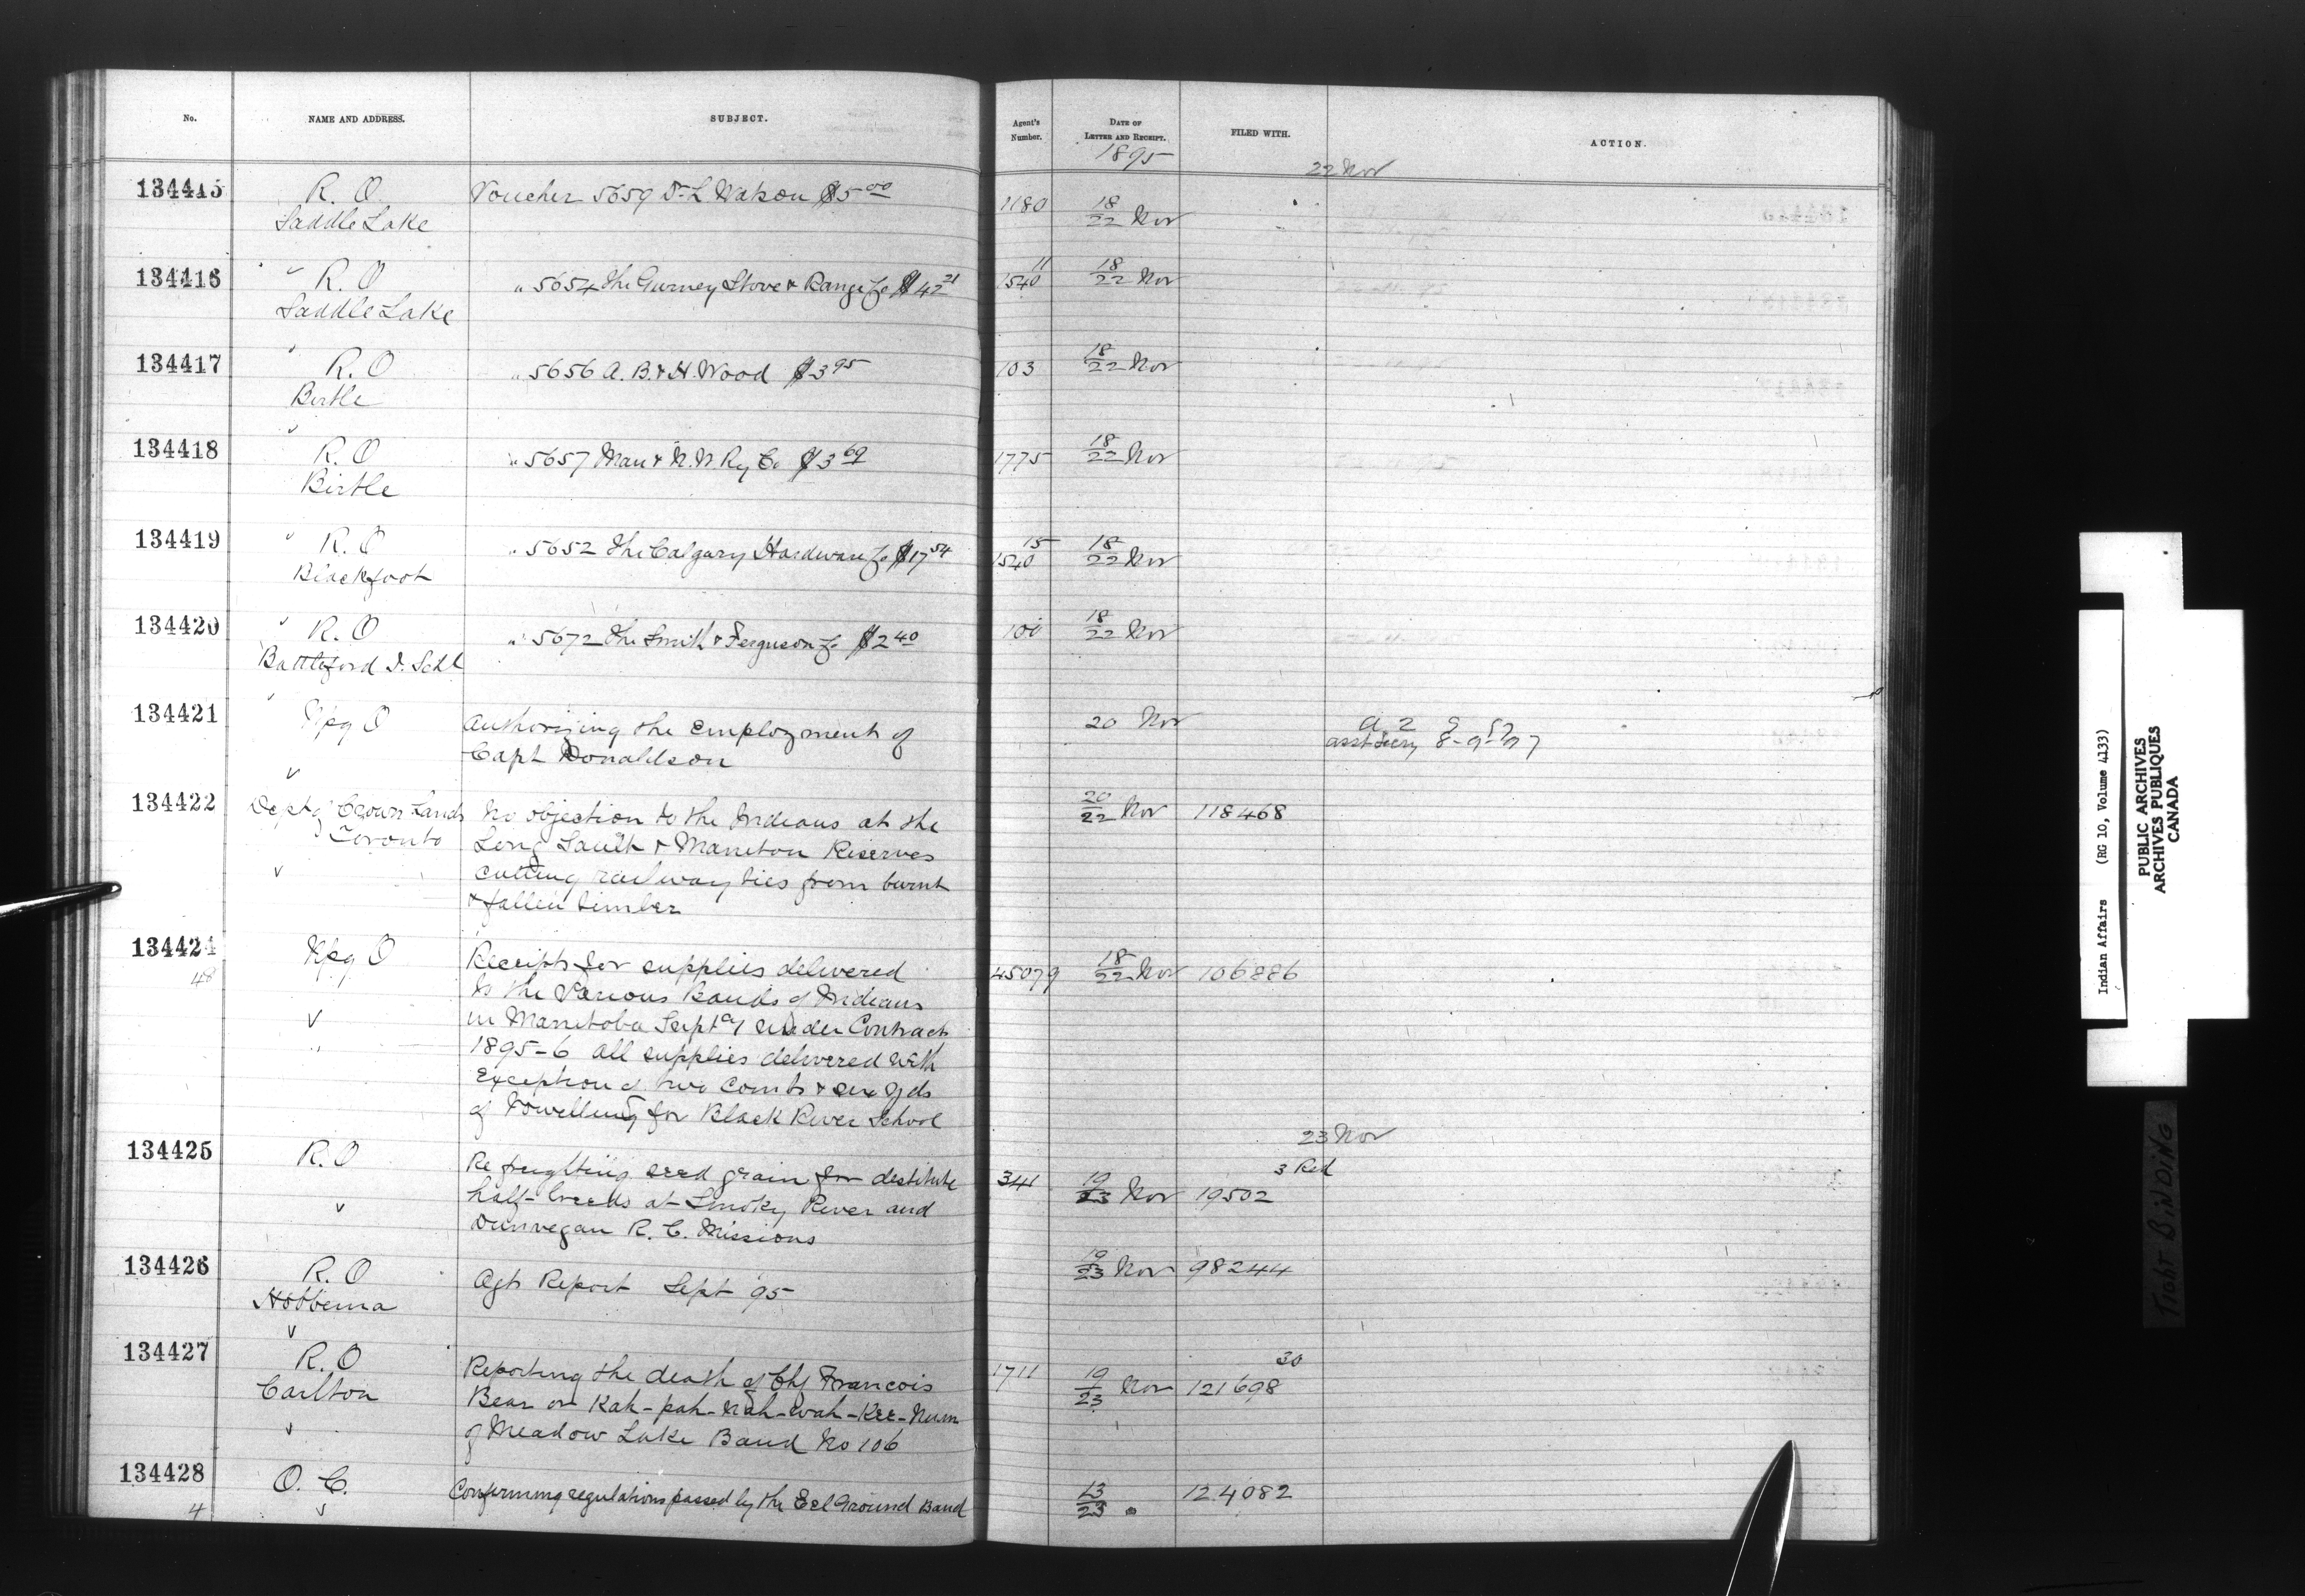 No. NAME AND ADDRESS. SUBJECT. Agent's Number. DATE OF LETTER AND RECEIPT. FILED WITH. ACTION.
1895
22 Nov
134415 R. O. Voucher 5659 D. L. Watson $5 00 1180 18/22 Nov
Saddle Lake
134416 R. O " 5654 The Gurney Stove & Range Co $42 21 11 1540 18/22 Nov
Saddle Lake
134417 R. O " 5656 A. B. & H. Wood $3 95 103 18/22 Nov
Birtle
134418 R. O " 5657 Man & N. W Ry Co $3 69 1775 18/22 Nov
Birtle
134419 R. O " 5652 The Calgary Hardware Co $17 54 15 1540 18/22 Nov
Blackfoot
134420 R. O " 5672 The Smith & Ferguson Co $2 40 18/22 Nov
Battleford I. Schl
134421 Wpg O Authorizing the Employment of 20 Nov
Capt Donaldson
asst Secy 8-9-97
134422 Dept of Crown Lands No objection to the Indians at the 20/22 Nov 118468
Toronto Long Sault & Maneton Reserves
cutting railway ties from burnt
& fallen timber
134424 Wpg O Receipts for supplies delivered 45079 18/22 Nov 106886
48 to the Various Bands of Indians
in Manitoba Sept under Contract
1895-6 all supplies delivered with
Exception of two Combs & yds
of Towelling for Black River School
23 Nov
3 Red
134425 R. O Re freighting seed grain for destitute 341 19/23 Nov 19502
half-breeds at Smoky River and
Dunvegan R. C. Missions
134426 R. O Agts Report Sept 95 19/23 Nov 98244
Hobbema
134427 R. O Reporting the death of Chf Francois 1711 19/23 Nov 30 121698
Carlton Bear or Kah-pah-Nah-wah-Kee-Num
of Meadow Lake Band No 106
134428 O. C. Confirming regulations passed by the Eel Ground Band 13/23 " 124082
4
Indian Affairs (RG 10, Volume 4133)
PUBLIC ARCHIVES
ARCHIVES PUBLIQUES
CANADA
TIGHT BINDING